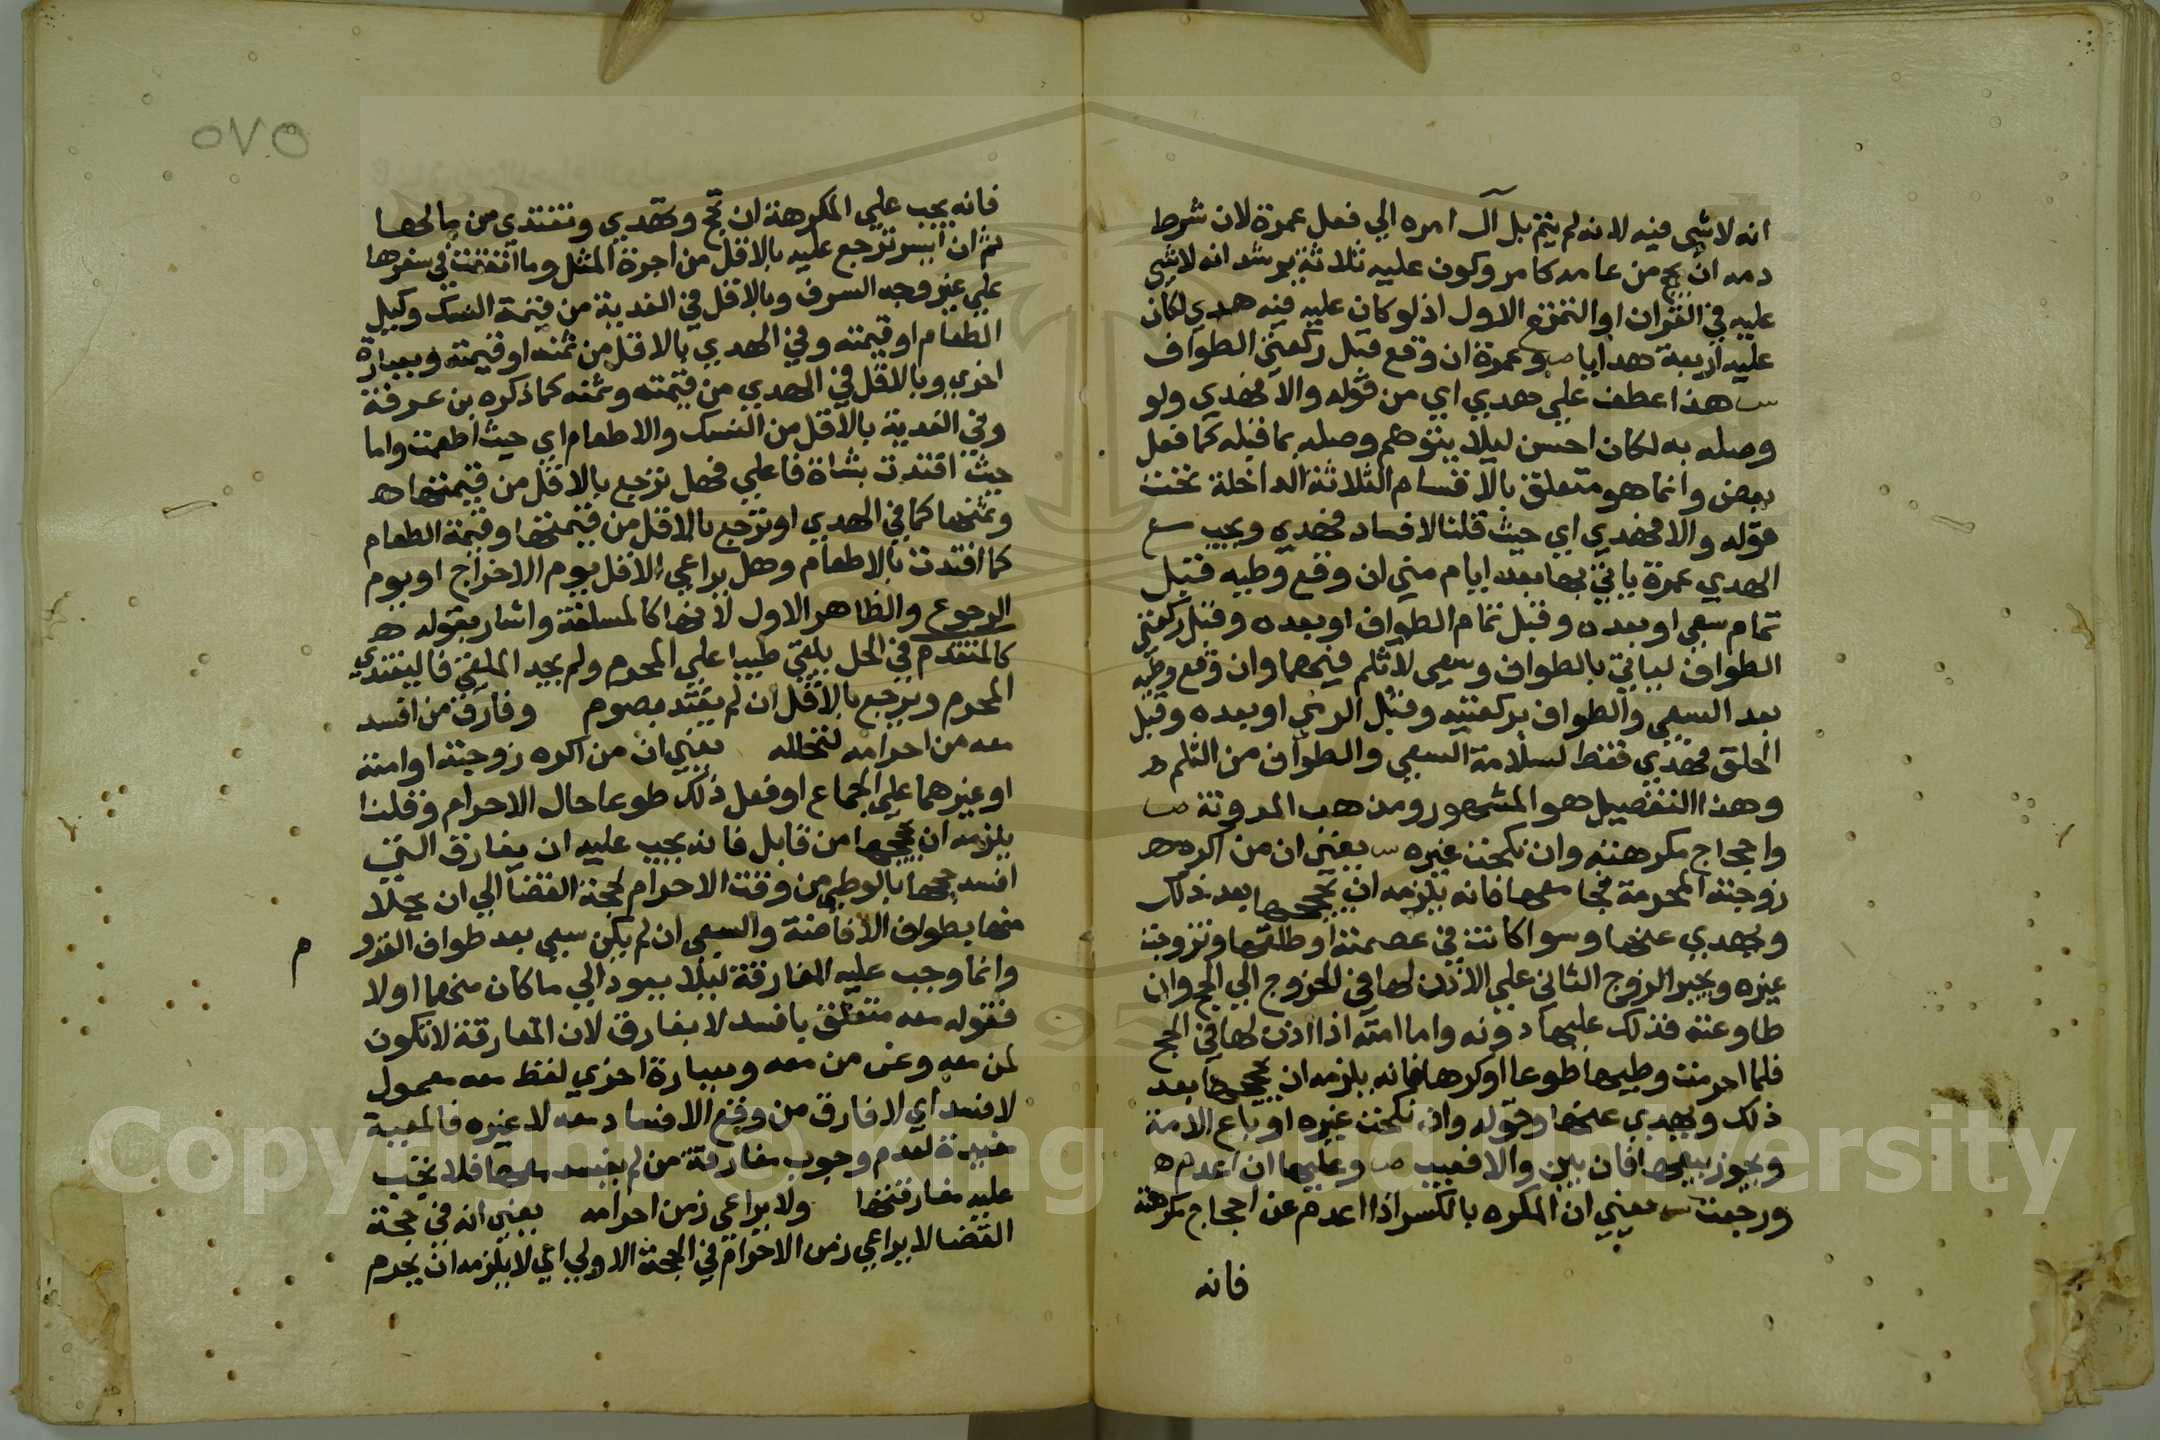 انه لا شي فيه لانه لم يتم بل آل امره الي فعل عمرة لان شرط
دمه ان يحج من عامه كما مر وكون عليه ثلاثة يرشد انه لا شي
عليه في القران او التمتع الاول اذ لو كان عليه فيه هدي لكان
عليه اربعة هدايا ص وعمرة ان وقع قبل ركعتي الطواف
ش هذا عطف علي هدي اي من قوله والا فهدي ولو
وصله به لكان احسن ليلا يتوهم وصله بما قبله كما فعل
بعض وانما هو متعلق بالاقسام الثلاثة الداخلة تحت
قوله والا فهدي اي حيث قلنا لا فساد فهدي ويجب مع
الهدي عمرة ياتي بها بعد ايام مني ان وقع وطيه قبل
تمام سعي او بعده وقبل تمام الطواف او بعده وقبل ركعتي
الطواف لياتي بالطواف وسعي لا ثلم فيهما وان وقع وطيه
بعد السعي والطواف بركعتيه وقبل الرمي او بعده وقبل
الحلق فهدي فقط لسلامة السعي والطواف من الثلم ه
وهذا التفصيل هو المشهور ومذهب المدونة ص
واحجاج مكرهته وان نكحت غيره ش يعني ان من اكره ه
زوجته المحرمة فجامعها فانه يلزمه ان يحججها بعد ذلك
ويهدي عنها وسوا كانت في عصمته او طلقها وتزوجت
غيره ويجبر الزوج الثاني علي الاذن لها في الخروج الي الحج وان
طاوعته فذلك عليها دونه واما امته اذا اذن لها في الحج
فلما احرمت وطيها طوعا او كرها فانه يلزمه ان يحججها بعد
ذلك ويهدي عنها وقوله وان نكحت غيره او باع الامة
ويجوز بيعها فان بين والا فعيب ص وعليها ان اعدم ه
ورجعت ش يعني ان المكره بالكسر اذا اعدم عن احجاج مكرهته
فانه
٥٧٥
فانه يجب علي المكرهة ان تحج وتهدي وتفتدي من مالها
ثم ان ايسر ترجع عليه بالاقل من اجرة المثل وما انفقت في سفرها
علي غير وجه السرف وبالاقل في الفدية من قيمة النسك وكيل
الطعام او قيمته وفي الهدي بالاقل من ثمنه او قيمته وبعبارة
اخري وبالاقل في الهدي من قيمته وثمنه كما ذكره بن عرفة
وفي الفدية بالاقل من النسك والاطعام اي حيث اطعمت واما
حيث افتدت بشاة فاعلي فهل ترجع بالاقل من قيمتها ه
وثمنها كما في الهدي او ترجع بالاقل من قيمتها وقيمة الطعام
كما افتدت بالاطعام وهل يراعي الاقل يوم الاخراج او يوم
الرجوع والظاهر الاول لانها كالمسلفة واشار بقوله ه
كالمتقدم في الحل يلقي طيبا علي المحرم ولم يجد الملقي فاليفتدي
المحرم ويرجع بالاقل ان لم يفتد بصوم وفارق من افسد
معه من احرامه لتحلله يعني ان من اكره زوجته او امته
او غيرهما علي الجماع او فعل ذلك طوعا حال الاحرام وقلنا
يلزمه ان يحججها من قابل فانه يجب عليه ان يفارق التي
افسد حجها بالوطي من وقت الاحرام لحجة القضا الي ان يحلا
منها بطواف الافاضة والسعي ان لم يكن سعي بعد طواف القدو
م
وانما وجب عليه المفارقة ليلا يعود الي ما كان منهما اولا
فقوله معه متعلق بافسد لا بفارق لان المفارقة لا تكون
لمن معه وعن من معه وبعبارة اخري لفظ معه معمول
لافسد اي الا فارق من وقع الافساد معه لا غيره فالمعية
مفيدة لعدم وجوب مفارقة من لم يفسد معها فلا يجب
عليه مفارقتها ولا يراعي زمن احرامه يعني انه في حجة
القضا لا يراعي زمن الاحرام في الحجة الاولي اي لا يلزمه ان يحرم